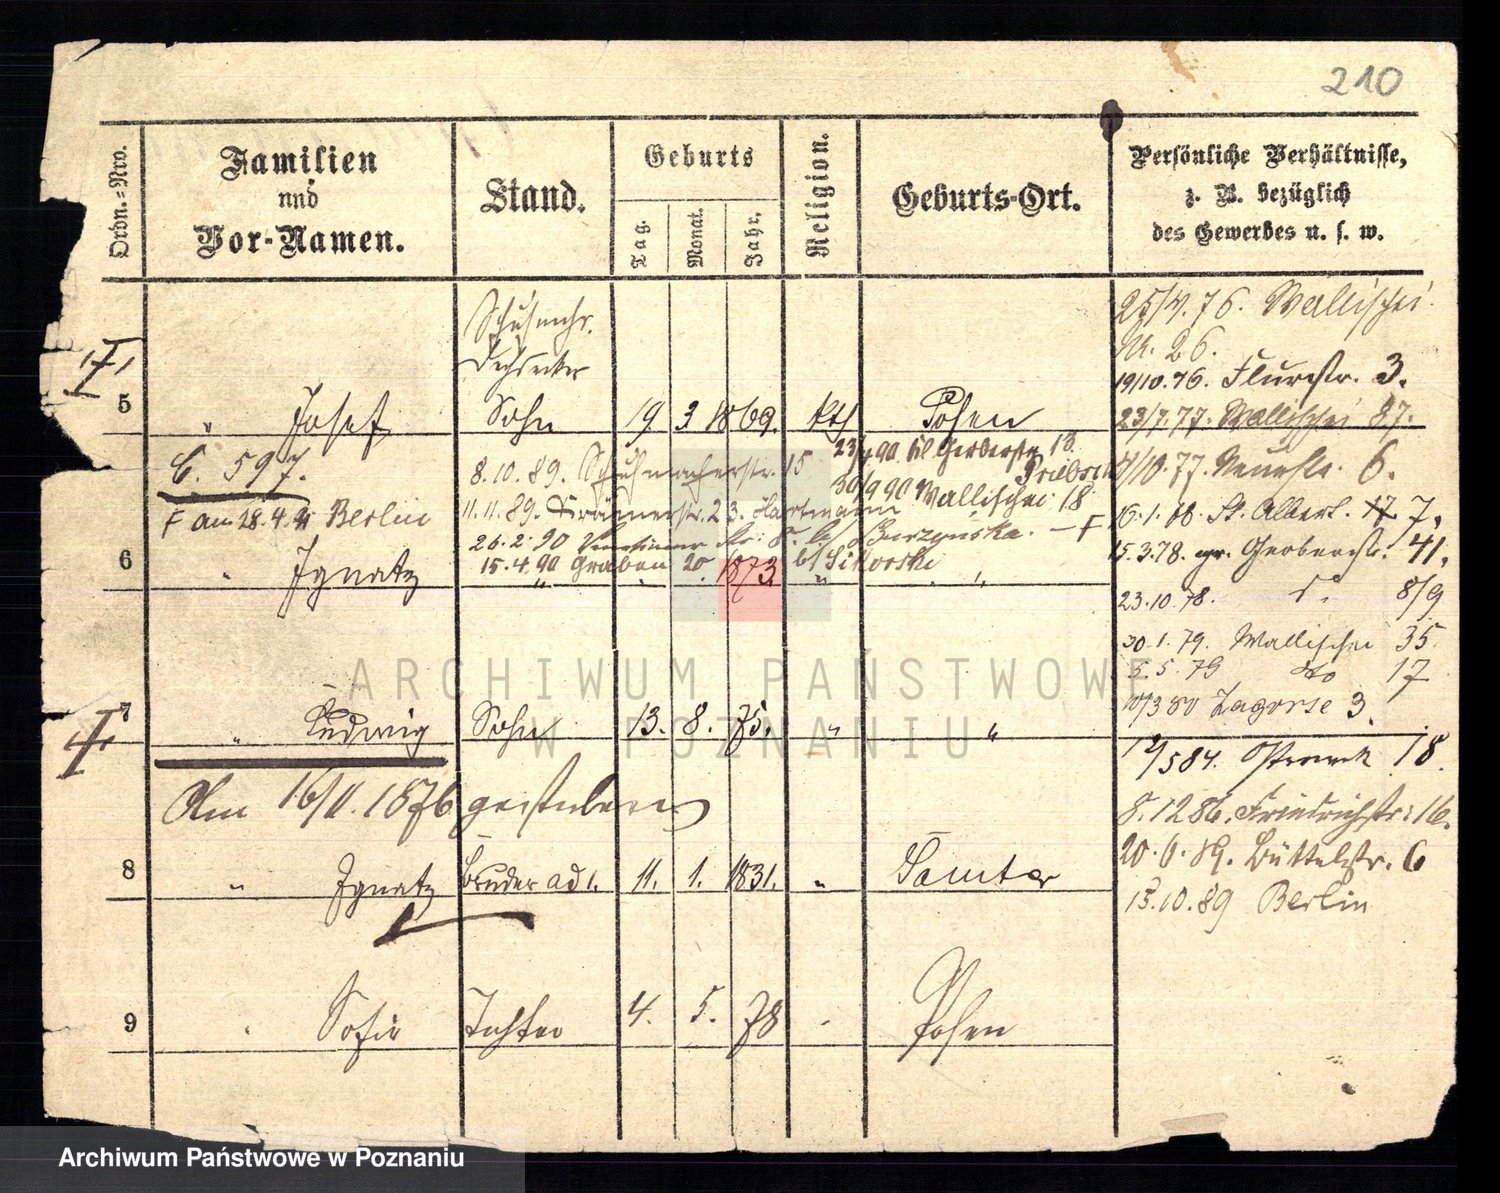 210
Ordn.-Nro.
Familien
und
Vor-Namen.
Stand.
Geburts
Tag.
Monat.
Jahr.
Religion.
Geburts-Ort.
Persönliche Verhältnisse,
z. B. bezüglich
des Gewerbes u. s. w.
25/4. 76. Wallischei
Nr. 26.
19/10. 76. Flurstr. 3.
5 " Josef Sohn 19 3 1869. kth Posen
23/7. 77. Wallischei 87.
C. 597.
8.10.89. Schuhmacherstr. 15
23/4 90 kl Gerberstr 13.
/10. 77. 6.
11.11.89. Krämerstr. 23. Hartmann
30/9 90 Wallischei 18
F am 28.4.91 Berlin
16.1.78. St. Adalbert. 17. 7,
26.2.90 b/ Burzynska. — F
15.3.78. gr. Gerberstr. 41,
15.4.90 Graben 20 b/ Sikorski
6 " Ignatz " 1873 " "
23.10.78. do 8/9
30.1.79. Wallischei 35
5.5.79 do 17
10/3 80 Zagorze 3.
7 " Ludwig Sohn 13. 8. 75. " "
12/5 84. Ostrowek 18.
Am 16/11. 1876 gestorben
8.12 86. Friedrichstr: 16.
20.6.89. Büttelstr. 6
8 " Ignatz Bruder ad 1. 11. 1. 1831. " Samter
13.10.89 Berlin
9 " Sofie Tochter 4. 5. 78 " Posen
ARCHIWUM PAŃSTWOWE
W POZNANIU
Archiwum Państwowe w Poznaniu